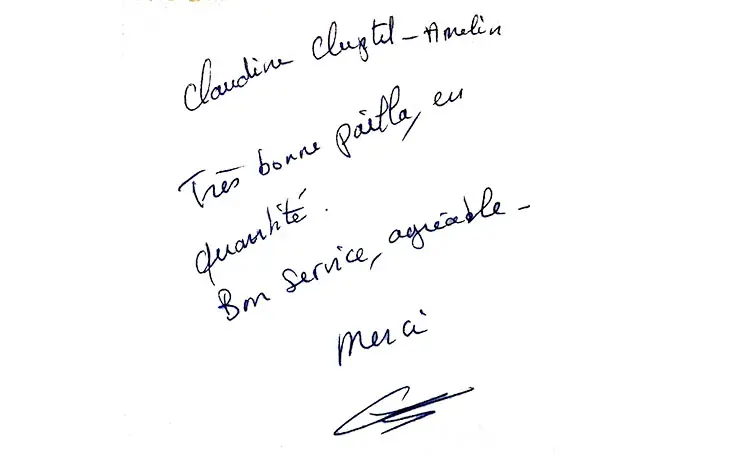 Claudine - Amelin
Très bonne paëlla, en
quantité.
Bon service, agréable -
Merci